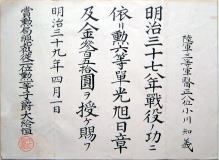 陸軍二等軍医正六位小川知義
明治三十七八年戦役ノ功ニ
依リ勲六等単光旭日章
及金参百五拾圓ヲ授ケ賜フ
明治三十九年四月一日
賞勲局総裁従二位勲一等子爵大給恒